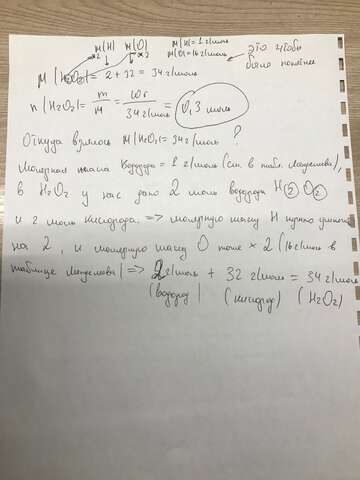 M(H) M(O) M(H)=1 г/моль
×2 ×2 M(O)=16 г/моль это чтобы
M(H2O2)= 2 + 32 = 34 г/моль было понятнее
n(H2O2)= m/M = 10г/34 г/моль = 0,3 моль
Откуда взялось M(H2O2)= 34 г/моль ?
Молярная масса водорода = 1 г/моль (см. в табл. Менделеева),
в H2O2 у нас дано 2 моль водорода H2O2
и 2 моль кислорода. => молярную массу H нужно умножить
на 2, и молярную массу O тоже × 2 (16 г/моль в
таблице Менделеева) => 2 г/моль + 32 г/моль = 34 г/моль
(водород) (кислород) (H2O2)